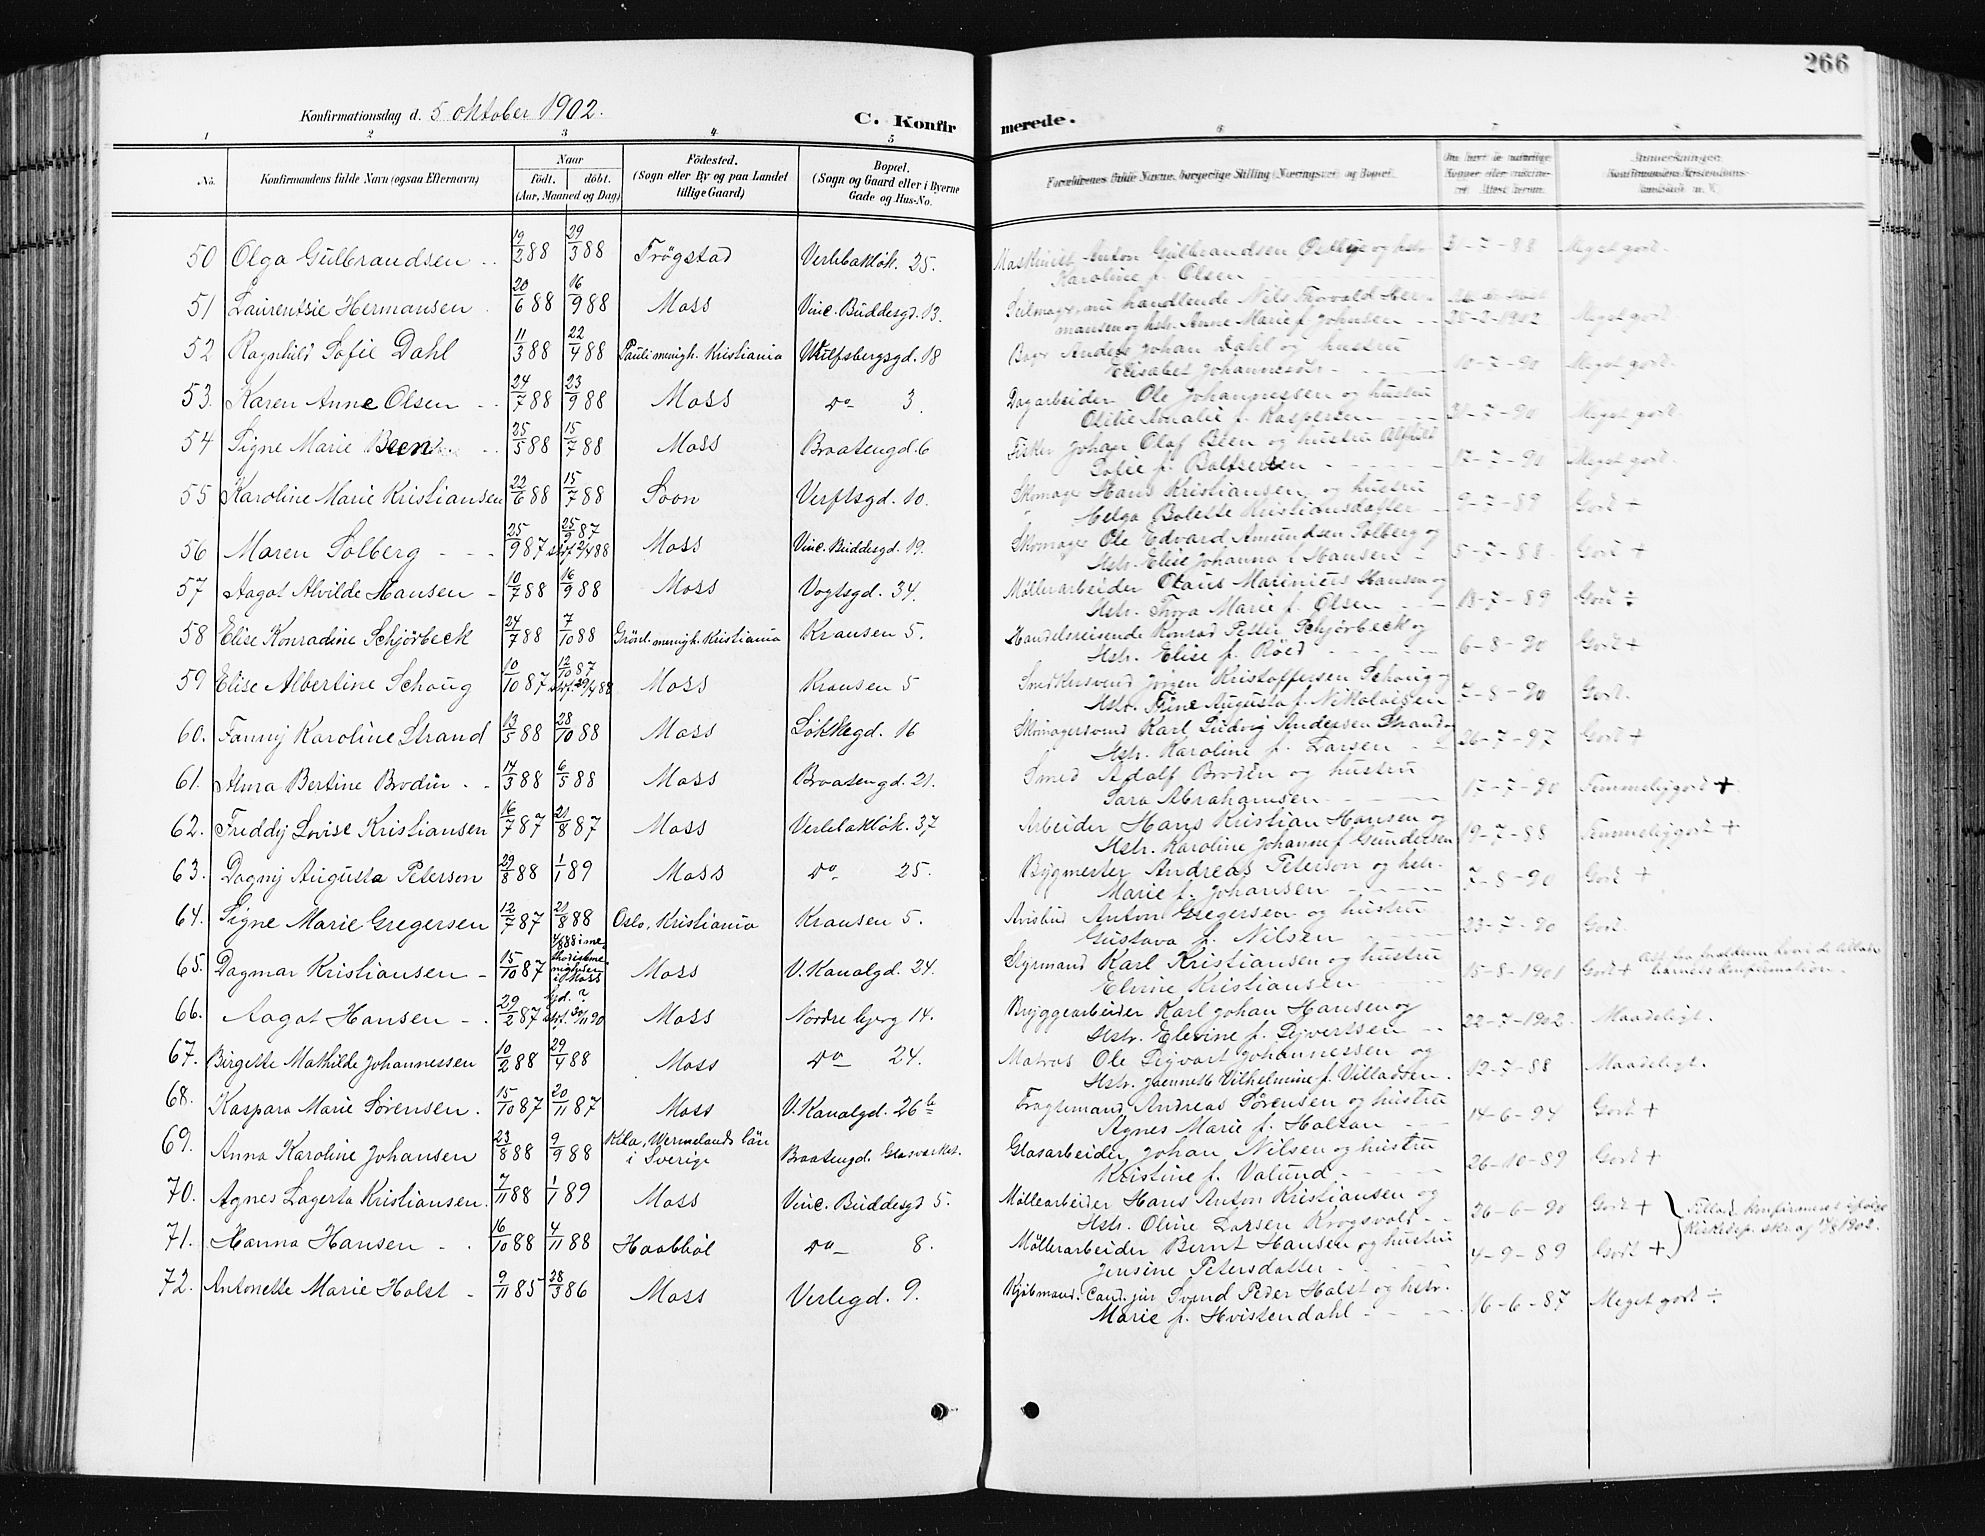 266
Konfirmationsdag d. 5 oktober 1902.
C. Konfir merede.
1 2 3 4 5 6 7
No. Konfirmandens fulde Navn (ogsaa Efternavn) Naar födt. döbt. (Aar, Maaned og Dag) Födested. (Sogn eller By og paa Landet tillige Gaard) Bopæl. (Sogn og Gaard eller i Byerne Gade og Hus-No. Forældrenes fulde Navne, borgerlige Stilling (Næringsvei) og Bopæl.
50 Olga Gulbrandsen 19/2 88 29/3 88 Trøgstad Verlebakløk. 25. Maskinist Anton Gulbrandsen Østbye og hstr. 31-7-88 Meget godt.
Karoline f. Olsen
51 Laurentsie Hermansen 20/6 88 16/9 88 Moss Vinc. Buddesgd. 13. nu handlende Nils Thorvald Her-
mansen og hstr. Anne Marie f. Johnsen 25-2-1902 Meget godt
52 Ragnhild Sofie Dahl 11/3 88 22/4 88 Pauli menigh. Kristiania Wulfsbergsgd. 18 Anders Johan Dahl og hustru
Elisabet Johannesdtr. 10-7-90 Meget godt.
53. Karen Anne Olsen 24/7 88 23/9 88 Moss Do 3. Dagarbeider Ole Johannessen og hustru
Otilie Amalie f. Kaspersen 31-7-90 Meget godt.
54 Signe Marie Been 25/5 88 15/7 88 Moss Braatengd. 6 Fisker Johan Olaf Been og hustru Alfhild
Sofie f. Baltsersen 17-7-90 Meget godt.
55 Karoline Marie Kristiansen 22/6 88 15/7 88 Soon Verftsgd. 10. Skomager Hans Kristiansen og hustru
Helga Bolette Kristiansdatter 9-7-89 Godt +
56 Maren Solberg 25/9 87 25/9 87 st. 2/4 88 Moss Vinc. Buddesgd. 19. Skomager Ole Edvard Amundsen Solberg og
Hstr. Elise Johanna f. Hansen 5-7-88. Godt +
57 Aagot Alvilde Hansen 10/7 88 16/9 88 Moss Vogtsgd. 34. Møllerarbeider Olaus Marinius Hansen og
Hstr. Thora Marie f. Olsen 18-7-89 Godt ÷
58 Elise Konradine Schjørbeck 24/7 88 7/10 88 Grönl. menigh. Kristiania Kransen 5. Handelsreisende Konrad Petter Schjørbeck og
Hstr. Elise f. Røed 6-8-90 Godt +
59 Elise Albertine Schaug 10/10 87 12/10 87 st. 29/4 88 Moss Kransen 5 Smedkersvend Jørgen Kristoffersen Schaug og
Hstr. Fine Augusta f. Nikolaisen 7-8-90 Godt.
60. Fanny Karoline Strand 13/5 88 28/10 88 Moss Løkkegd. 16 Skomagersvend Karl Ludvig Andersen Strand og
Hstr. Karoline f. Larsen 26-7-97 Godt +
61. Alma Bertine Brodin 14/3 88 6/5 88 Moss Braatengd. 21. Smed Adolf Brodin og hustru
Sara Abrahamsen 17-7-90 Temmelig godt +
62. Freddy Lovise Kristiansen 16/7 87 21/8 87 Moss Verlebakløk. 37 Arbeider Hans Kristian Hansen og
Hstr. Karoline Johanne f. Gundersen 19-7-88 Temmelig godt +
63. Dagny Augusta Peterson 29/8 88 1/1 89 Moss Do 25. Bygmester Andreas Peterson og hstr.
Marie f. Johansen 7-8-90 Godt +
64. Signe Marie Gregersen 12/7 87 21/8 88 Oslo, Kristiania Kransen 5. Avisbud Anton Gregersen og hustru
Gustava f. Nilsen 23-7-90 Godt.
65. Dagmar Kristiansen 15/10 87 4/8 88 i methodistmenigheden i Moss Moss V. Kanalgd. 24. Styrmand Karl Kristiansen og hustru
Elvine Kristiansen 15-8-1901 Godt + barnets konfirmation.
66. Aagot Hansen 29/2 87 hjd. ? st. 30/11 90 Moss Nordre bjerg 14. Bryggearbeider Karl Johan Hansen og
Hstr. Elevine f. Syvertsen 22-7-1902. Maadeligt.
67. Birgette Mathilde Johannessen 10/2 88 29/4 88 Moss Do 24. Matros Ole Sigvart Johannessen og
Hstr. Jaennette Vilhelmine f. Villadsen. 12-7-88 Maadeligt.
68. Kaspara Marie Sørensen. 15/10 87 20/11 87 Moss V. Kanalgd. 26 b Fragtemand Andreas Sørensen og hustru
Agnes Marie f. Holtan 14-6-94 Godt +
69. Anna Karoline Johansen 23/8 88 9/9 88 Kila, Wermelands län i Sverige Braatengd. Glasværket. Glasarbeider Johan Nilsen og hustru
Kristine f. Valund 26-10-89 Godt +
70. Agnes Lagerta Kristiansen. 7/11 88 1/1 89 Moss Vinc. Buddesgd 5. Møllearbeider Hans Anton Kristiansen og
Hstr. Oline Larsen Krogsvold 26-6-90 Godt + Tillad. konfirmeret ifølge
Kirkedep. skr. af 1/8 1902.
71. Hanna Hansen 16/10 88 4/11 88 Haabböl Do 8. Møllerarbeider Bernt Hansen og hustru
Jensine Petersdatter 4-9-89 Godt +
72. Antonette Marie Holst 9/11 85 28/3 86 Moss Verlegd. 9. Kjøbmand. Cand. jur Svend Peder Holst og hstr.
Marie f. Hvistendahl 16-6-87 Meget godt ÷